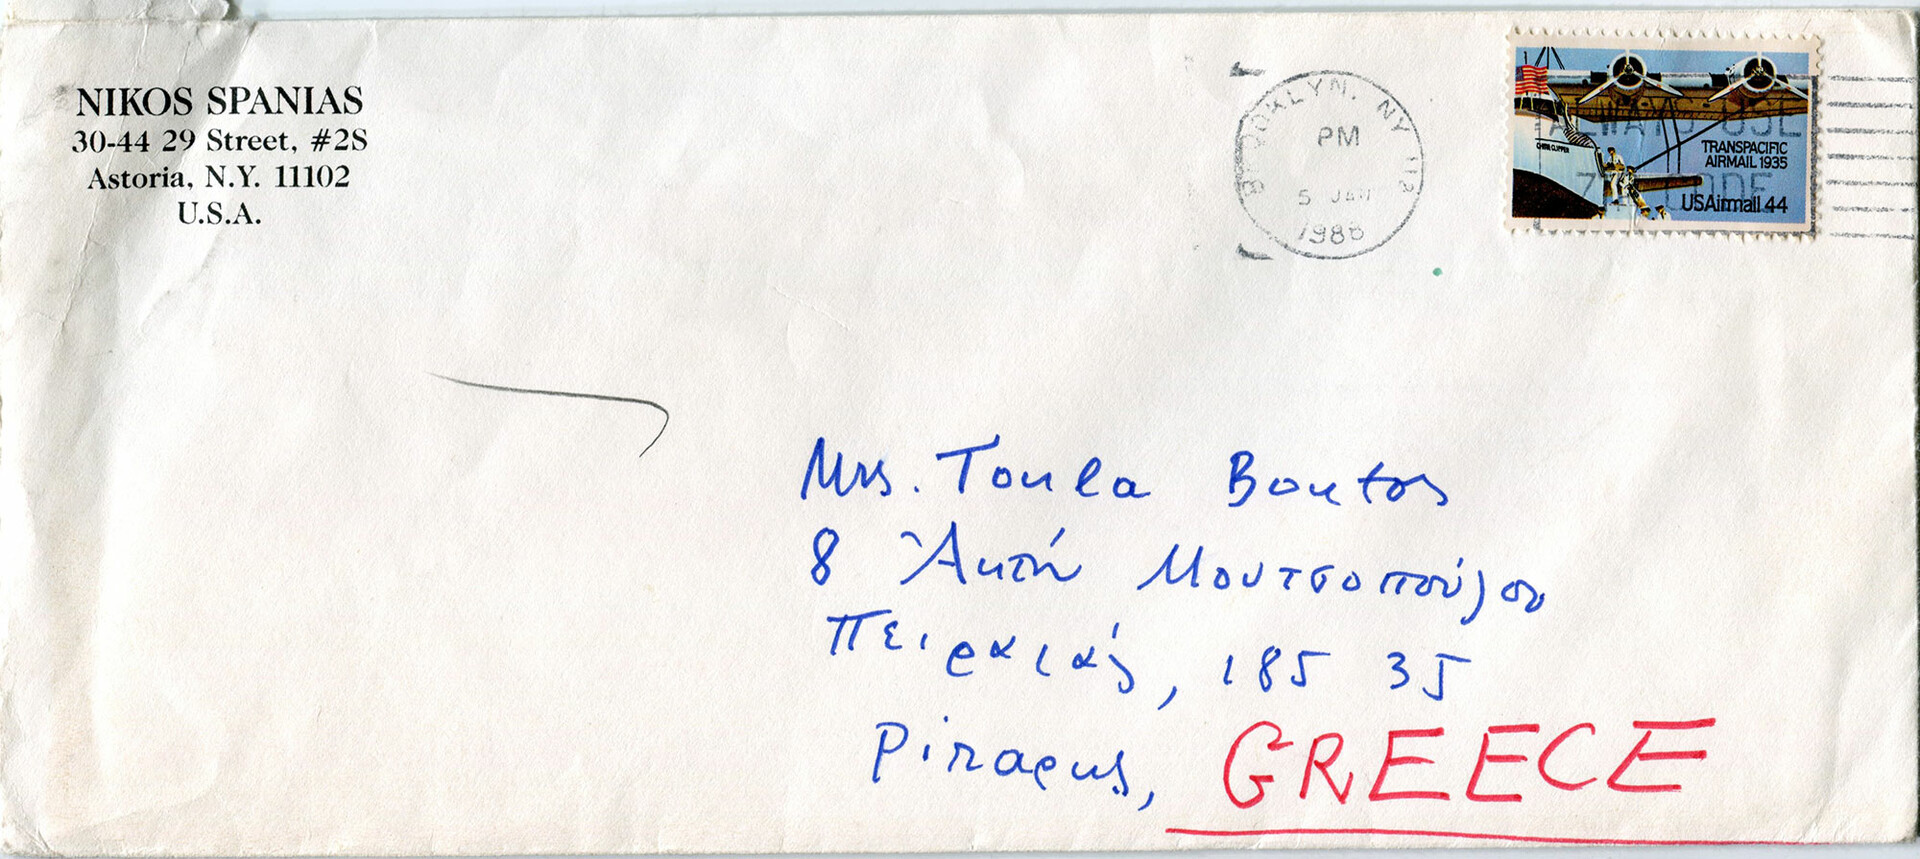 NIKOS SPANIAS
30-44 29 Street, #2S
Astoria, N.Y. 11102
U.S.A.
BROOKLYN, NY 112
PM
5 JAN
1986
ALWAYS USE
ZIP CODE
CHINA CLIPPER
TRANSPACIFIC
AIRMAIL 1935
USAirmail 44
Mrs. Toula Boutos
8 Ἀκτή Μουτσοπούλου
Πειραιάς, 185 35
Piraeus, GREECE